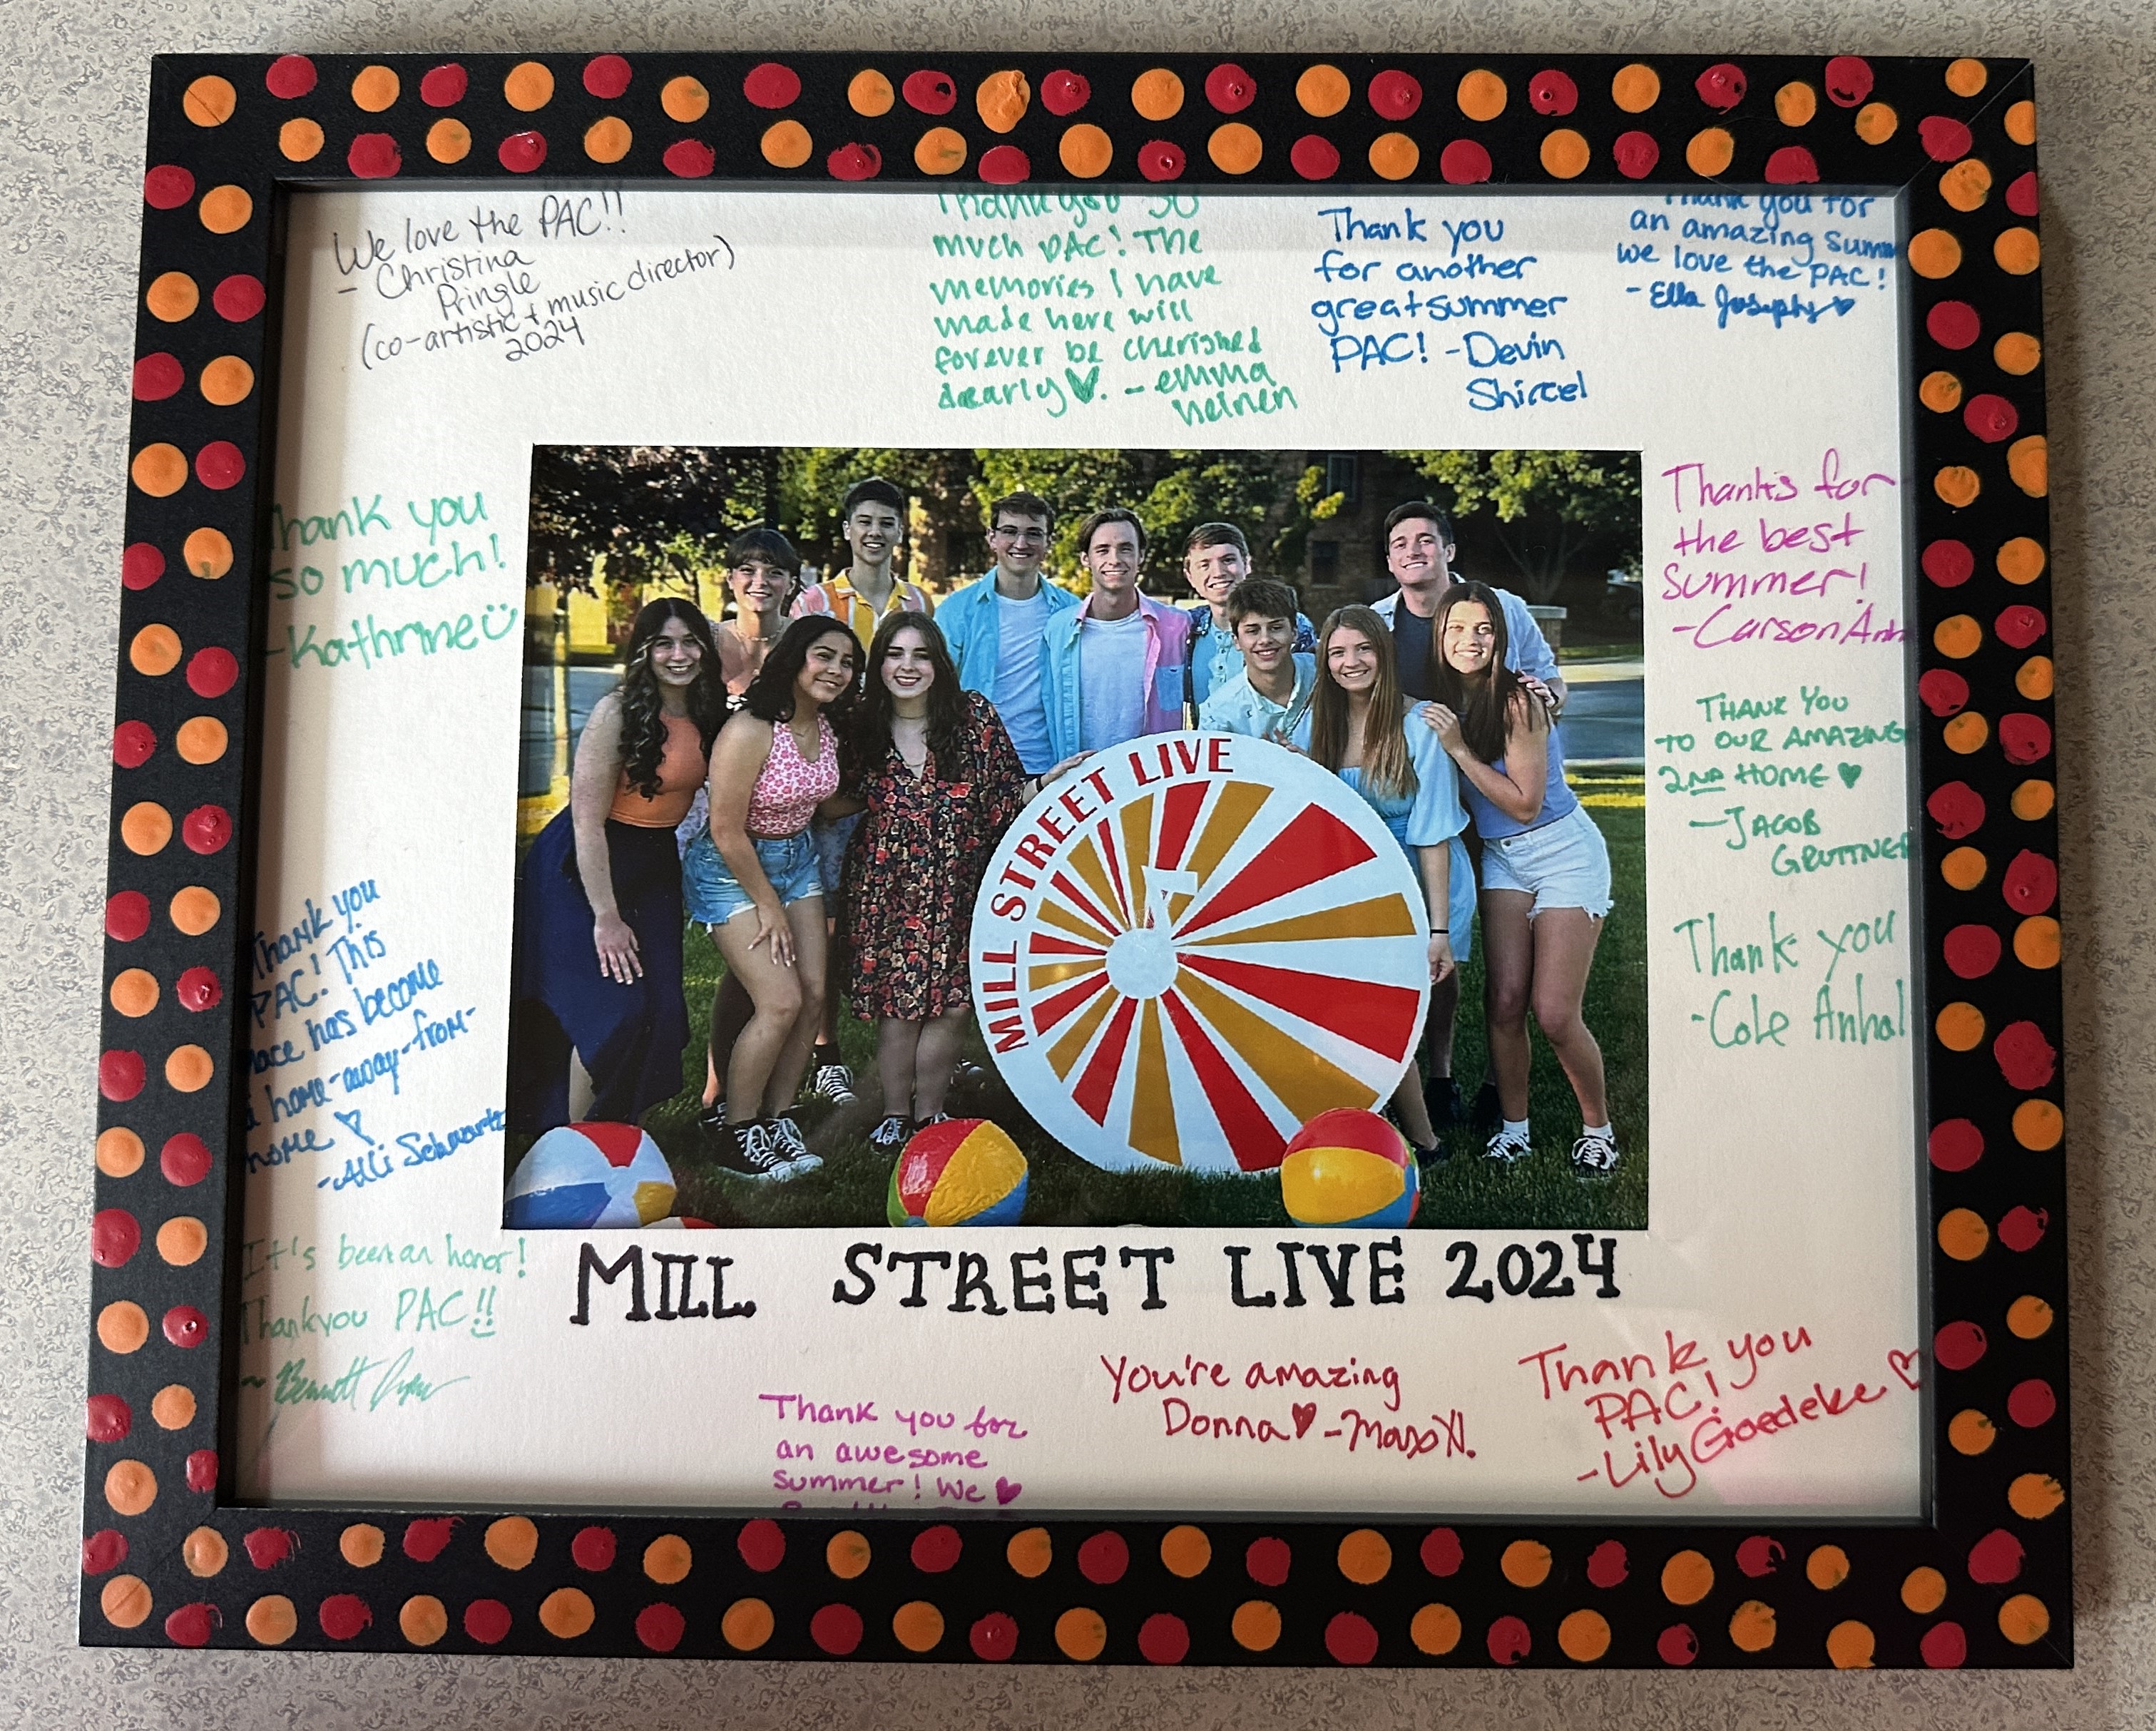 We love the PAC!!
- Christina
Pringle
(co-artistic + music director)
2024
Thank you so
much PAC! The
memories I have
made here will
forever be cherished
dearly ♥. - emma
heinen
Thank you
for another
great summer
PAC! - Devin
Shircel
Thank you for
an amazing summ
we love the PAC!
- Ella Josephs ♥
hank you
so much!
-Kathrine
Thanks for
the best
summer!
- Carson Anh
THANK YOU
TO OUR AMAZING
2ND HOME ♥
- JACOB
GRUTTNER
Thank you
PAC! This
lace has become
a home-away-from-
home ♡
- Alli Schwartz
Thank you
- Cole Anhal
MILL STREET LIVE
It's been an honor!
Thankyou PAC!!
~ Bennett
MILL STREET LIVE 2024
Thank you for
an awesome
summer! We ♥
You're amazing
Donna ♥ - Max
Thank you
PAC!
- Lily Goedeke ♡